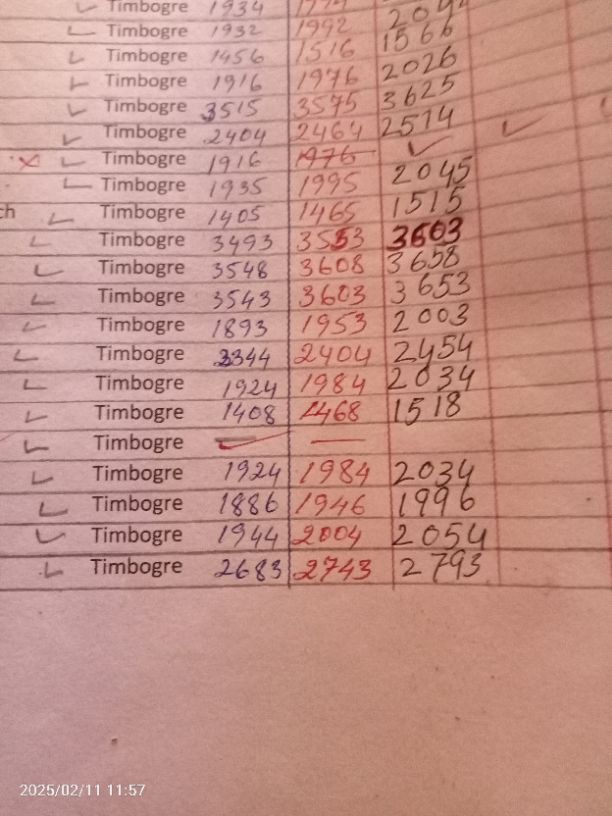 Timbogre 1934
Timbogre 1932 1992
Timbogre 1456 1516 1566
Timbogre 1916 1976 2026
Timbogre 3515 3575 3625
Timbogre 2404 2464 2514
Timbogre 1916 1976
Timbogre 1935 1995 2045
ch Timbogre 1405 1465 1515
Timbogre 3493 3553 3603
Timbogre 3548 3608 3658
Timbogre 3543 3603 3653
Timbogre 1893 1953 2003
Timbogre 2344 2404 2454
Timbogre 1924 1984 2034
Timbogre 1408 1468 1518
Timbogre
Timbogre 1924 1984 2034
Timbogre 1886 1946 1996
Timbogre 1944 2004 2054
Timbogre 2683 2743 2793
2025/02/11 11:57